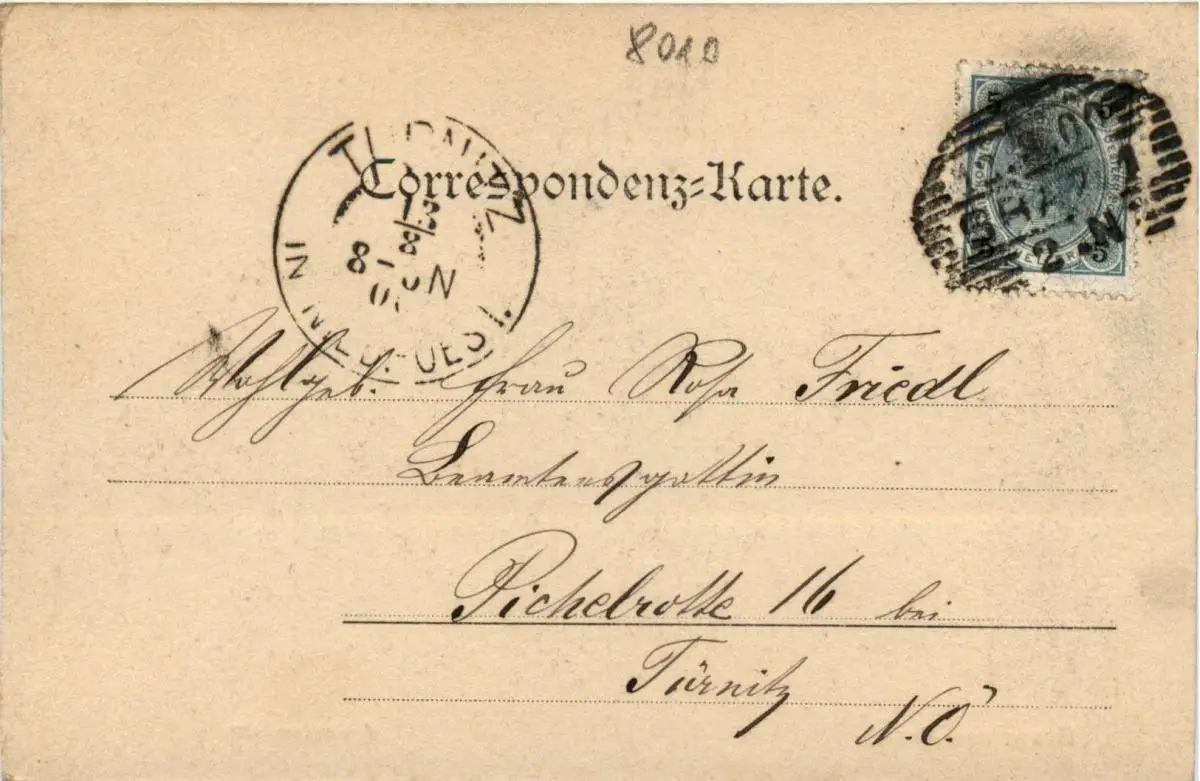 8010
Correspondenz=Karte.
TÜRNITZ
IN NIED. OEST.
Wohlgeb. Frau Rosa Friedl
Beamtensgattin
Pichelrotte 16 bei
Türnitz
N.Ö.